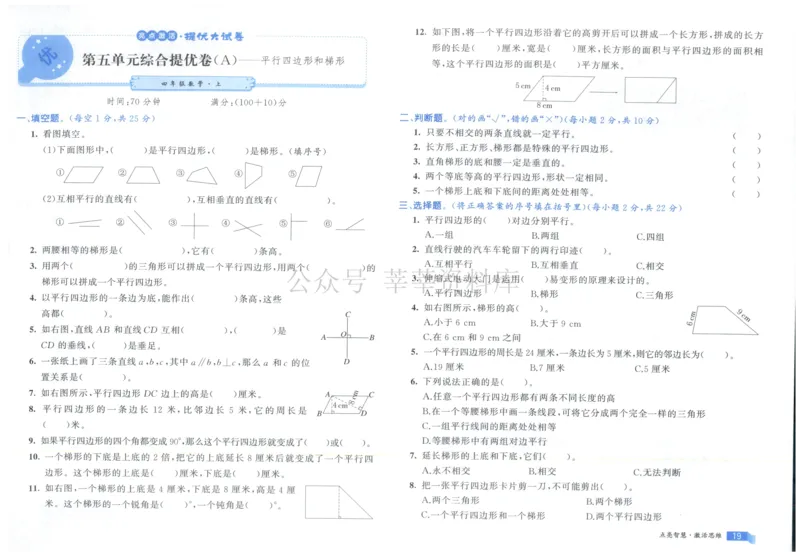 高点激活·提优大试卷
优
第五单元综合提优卷(A)——平行四边形和梯形
四年级数学·上
时间:70分钟 满分:(100+10)分
一、填空题。(每空1分,共25分)
1. 看图填空。
(1)下面图形中,( )是平行四边形,( )是梯形。(填序号)
① ② ③ ④ ⑤
(2)互相平行的直线有( ),互相垂直的直线有( )。
① ② ③ ④ ⑤ ⑥
2. 两腰相等的梯形是( ),它有( )条高。
3. 用两个( )的三角形可以拼成一个平行四边形,用两个( )的
梯形可以拼成一个平行四边形。
4. 以平行四边形的一条边为底,能作出( )条高,这些
高都( )。
5. 如右图,直线AB和直线CD互相( ),( )是
CD的垂线,( )是垂足。
C
A O B
D
6. 一张纸上画了三条直线a,b,c,其中a∥b,b⊥c,那么a和c的位
置关系是( )。
7. 如右图所示,平行四边形DC边上的高是( )厘米。
A C
4cm
B D
8. 平行四边形的一条边长12米,比邻边长5米,它的周长是
( )米。
9. 如果平行四边形的四个角都变成90°,那么这个平行四边形就变成了( )或( )。
10. 一个梯形的下底是上底的2倍,把它的上底延长8厘米后就变成了一个平行四
边形。这个梯形的上底是( )厘米,下底是( )厘米。
11. 如右图,一个梯形的上底是4厘米,下底是8厘米,高是4厘
米。这个梯形的一个锐角是( )°,一个钝角是( )°。
12. 如下图,将一个平行四边形沿着它的高剪开后可以拼成一个长方形,拼成的长方
形的长是( )厘米,宽是( )厘米,长方形的面积与平行四边形的面积相
等,这个平行四边形的面积是( )平方厘米。
5cm 4cm
8cm
二、判断题。(对的画“√”,错的画“×”)(每小题2分,共10分)
1. 只要不相交的两条直线就一定平行。 ( )
2. 长方形、正方形、梯形都是特殊的平行四边形。 ( )
3. 直角梯形的底和腰一定是垂直的。 ( )
4. 两个等底等高的平行四边形,形状一定相同。 ( )
5. 一个梯形上底和下底间的距离处处相等。 ( )
三、选择题。(将正确答案的序号填在括号里)(每小题2分,共22分)
1. 平行四边形的( )对边分别平行。
A.一组 B.两组 C.四组
2. 直线行驶的汽车车轮留下的两行印迹( )。
A.互相平行 B.互相垂直 C.相交
3. 伸缩式电动大门是运用( )易变形的原理来设计的。
A.平行四边形 B.梯形 C.三角形
4. 如右图所示,梯形的高( )。
A.小于6cm B.大于9cm
C.在6cm和9cm之间
6cm 9cm
5. 一个平行四边形的周长是24厘米,一条边长为5厘米,则它的邻边长为( )。
A.19厘米 B.7厘米 C.5厘米
6. 下列说法正确的是( )。
A.任意一个平行四边形都有两条不同长度的高
B.在一个等腰梯形中画一条线段,可将它分成两个完全一样的三角形
C.一组平行线间的距离处处相等
D.等腰梯形中有两组对边平行
7. 延长梯形的上底和下底,它们( )。
A.永不相交 B.相交 C.无法判断
8. 把一张平行四边形卡片剪一刀,不可能剪出( )。
A.两个三角形 B.两个梯形
C.一个平行四边形和一个梯形 D.两个平行四边形
公众号 莘莘资料库
点亮智慧·激活思维 19